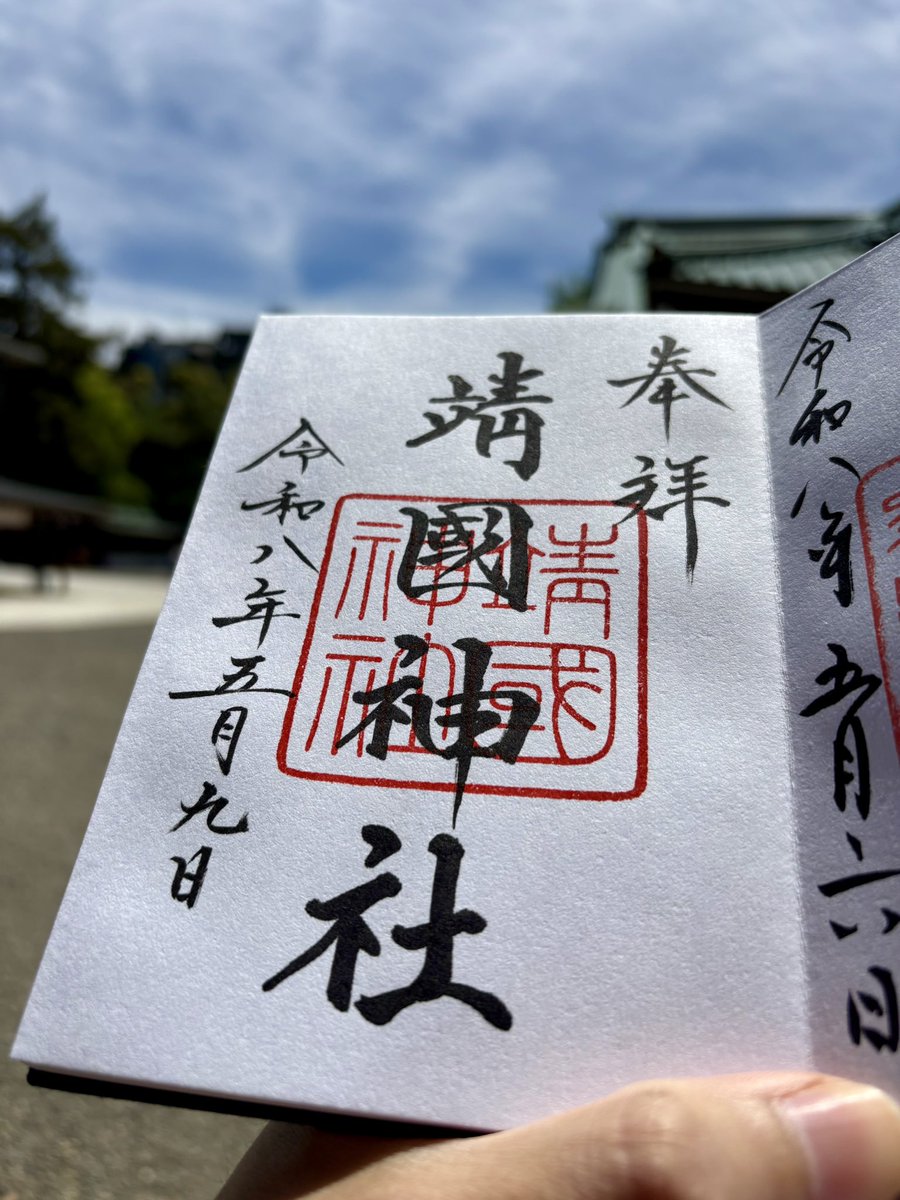 令和八年五月六日
奉拝
靖國神社
靖國
神社
令和八年五月九日